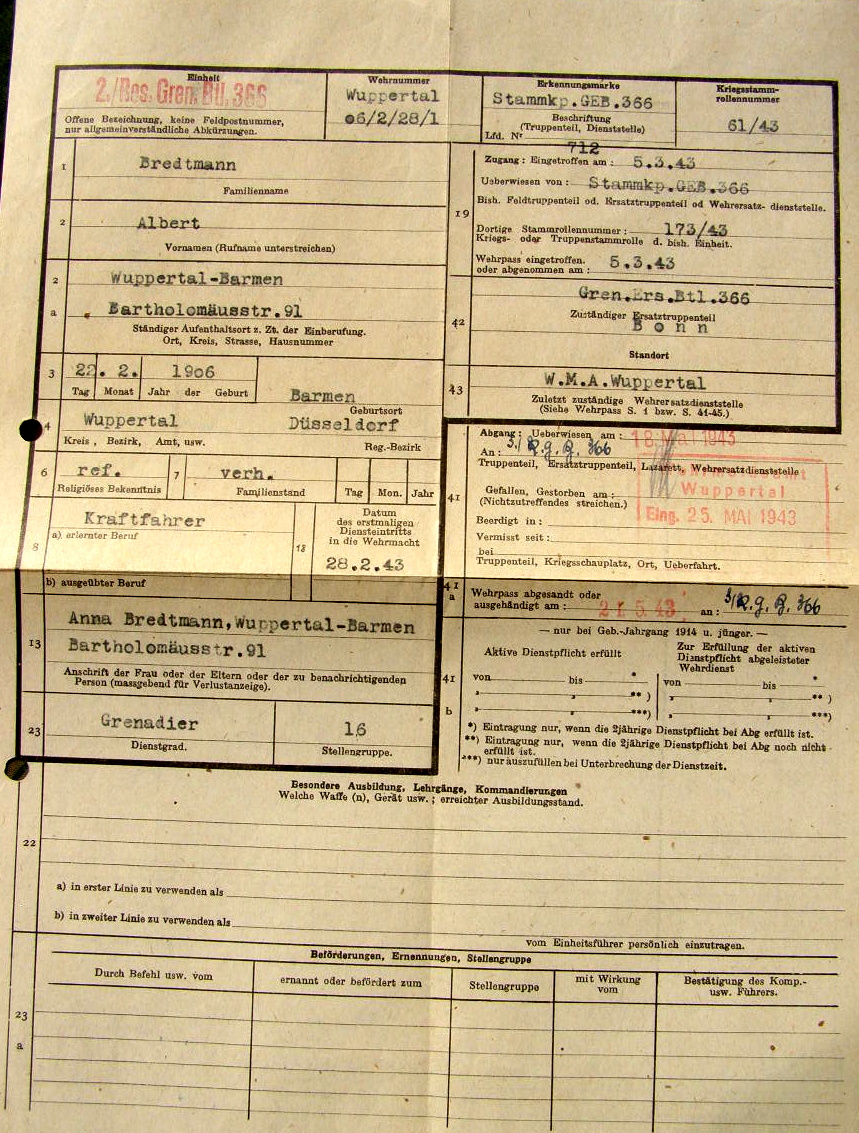 Einheit
2./Res. Gren. Btl. 366
Offene Bezeichnung, keine Feldpostnummer,
nur allgemeinverständliche Abkürzungen.
Wehrnummer
Wuppertal
06/2/28/1
Erkennungsmarke
Stammkp.GEB.366
Beschriftung
(Truppenteil, Dienststelle)
Lfd. Nr 712
Kriegsstamm-
rollennummer
61/43
1
Bredtmann
Familienname
2
Albert
Vornamen (Rufname unterstreichen)
2
a
Wuppertal-Barmen
Bartholomäusstr.91
Ständiger Aufenthaltsort z. Zt. der Einberufung.
Ort, Kreis, Strasse, Hausnummer
3
22. 2. 1906
Tag Monat Jahr der Geburt
Barmen
Geburtsort
4
Wuppertal Düsseldorf
Kreis, Bezirk, Amt, usw. Reg.-Bezirk
6
ref.
Religiöses Bekenntnis
7
verh.
Familienstand
Tag Mon. Jahr
8
Kraftfahrer
a) erlernter Beruf
b) ausgeübter Beruf
18
Datum
des erstmaligen
Diensteintritts
in die Wehrmacht
28.2.43
13
Anna Bredtmann, Wuppertal-Barmen
Bartholomäusstr.91
Anschrift der Frau oder der Eltern oder der zu benachrichtigenden
Person (massgebend für Verlustanzeige).
23
Grenadier
Dienstgrad.
16
Stellengruppe.
19
Zugang: Eingetroffen am: 5.3.43
Ueberwiesen von: Stammkp.GEB.366
Bish. Feldtruppenteil od. Ersatztruppenteil od Wehrersatz- dienststelle.
Dortige Stammrollennummer: 173/43
Kriegs- oder Truppenstammrolle d. bish. Einheit.
Wehrpass eingetroffen.
oder abgenommen am: 5.3.43
42
Gren.Ers.Btl.366
Zuständiger Ersatztruppenteil
Bonn
Standort
43
W.M.A.Wuppertal
Zuletzt zuständige Wehrersatzdienststelle
(Siehe Wehrpass S. 1 bzw. S. 41-45.)
41
Abgang: Ueberwiesen am: 18. Mai 1943
An: 3/ R.G.B. 366
Truppenteil, Ersatztruppenteil, Lazarett, Wehrersatzdienststelle
Wuppertal
Eing. 25. MAI 1943
Gefallen, Gestorben am:
(Nichtzutreffendes streichen.)
Beerdigt in:
Vermisst seit:
bei
Truppenteil, Kriegsschauplatz, Ort, Ueberfahrt.
41
a
Wehrpass abgesandt oder
ausgehändigt am: 21.5.43 an: 3/R.G.B. 366
41
b
— nur bei Geb.-Jahrgang 1914 u. jünger. —
Aktive Dienstpflicht erfüllt
von bis *
" " **)
" " ***)
Zur Erfüllung der aktiven
Dienstpflicht abgeleisteter
Wehrdienst
von bis *
" " **)
" " ***)
*) Eintragung nur, wenn die 2jährige Dienstpflicht bei Abg erfüllt ist.
**) Eintragung nur, wenn die 2jährige Dienstpflicht bei Abg noch nicht
erfüllt ist.
***) nur auszufüllen bei Unterbrechung der Dienstzeit.
22
Besondere Ausbildung, Lehrgänge, Kommandierungen
Welche Waffe (n), Gerät usw.; erreichter Ausbildungsstand.
a) in erster Linie zu verwenden als
b) in zweiter Linie zu verwenden als
vom Einheitsführer persönlich einzutragen.
23
a
Beförderungen, Ernennungen, Stellengruppe
Durch Befehl usw. vom
ernannt oder befördert zum
Stellengruppe
mit Wirkung
vom
Bestätigung des Komp.-
usw. Führers.